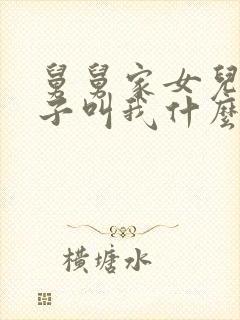 舅舅家女兒
子叫我什麼
橫塘水